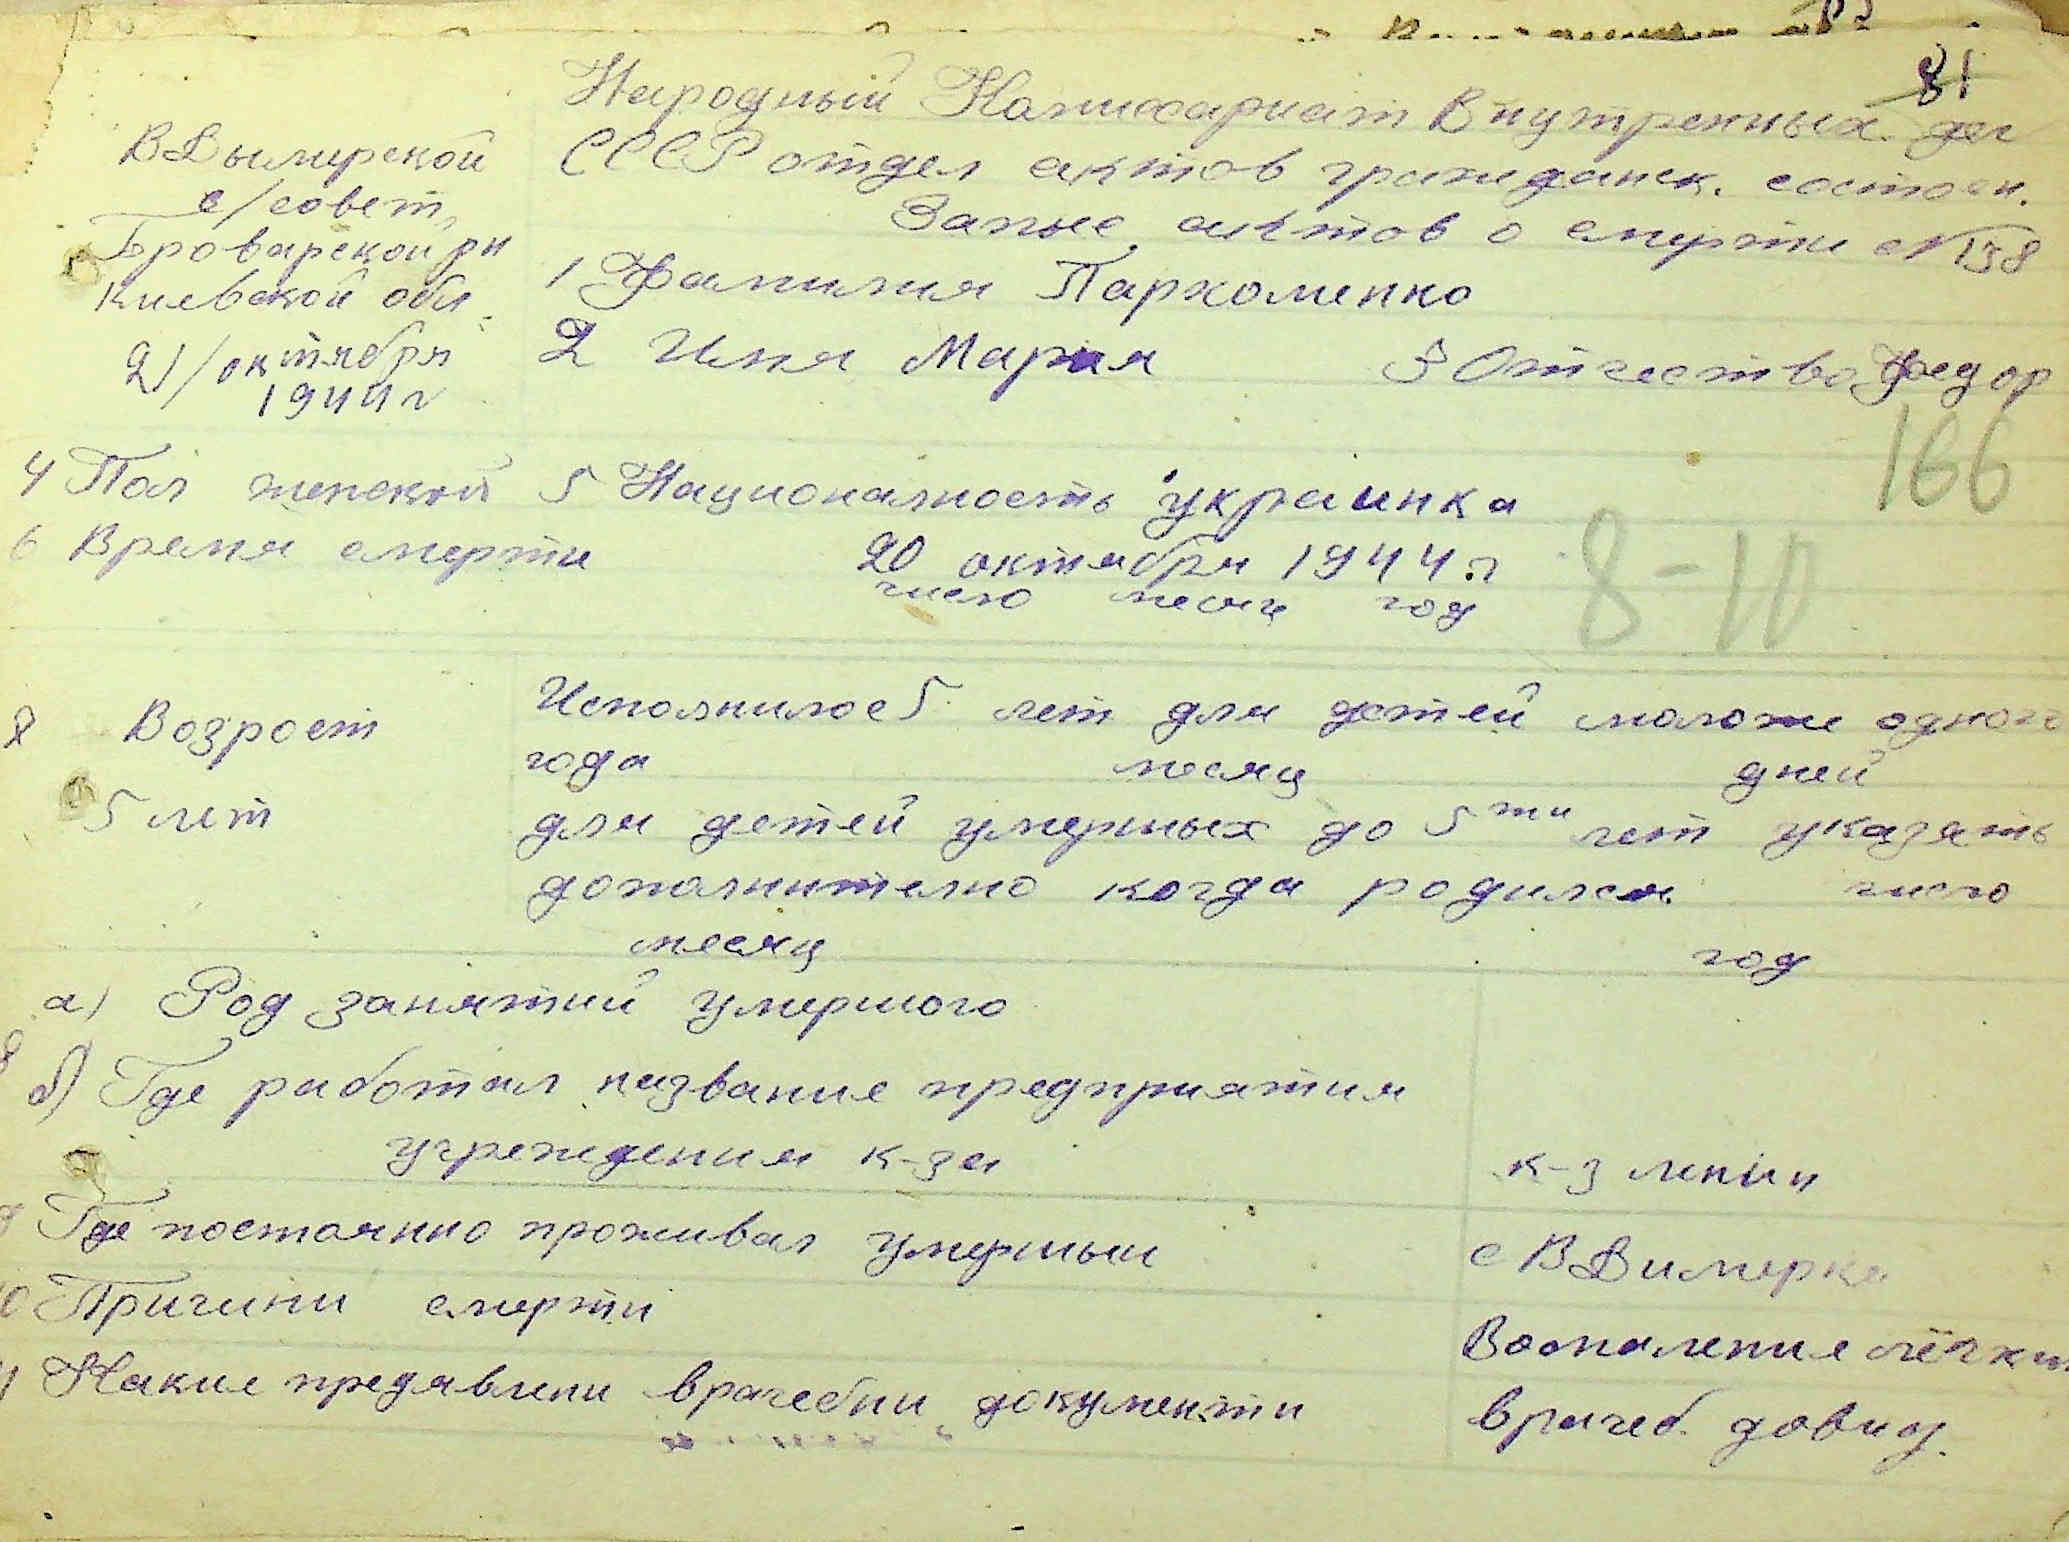 81
Народный Комисариат Внутренных дел
СССР отдел актов гражданск. состоян.
Запис актов о смерти №138
В Дымирской
с/совет,
Броварской рн
Киевской обл.
21/октября
1944г
1 Фамилия Пархоменко
2 Имя Мария 3 Отчество Федор
166
4 Пол женской 5 Националность украинка
6 Время смерти 20 октября 1944.г
число месяц год
8-10
Возрост
5 лет
Исполнилос 5 лет для детей моложе одного
года месяц дней
для детей умерших до 5ти лет указать
дополнително когда родился число
месяц год
а) Род занятий умершого
8 б) Где работал название предприятия
учреждения к-за к-з леніи
9 Где постоянно проживал умершыи с В Димерка
10 Причини смерти Воспаление лёгких
11 Какие предявлени врачебни документи врачеб. довид.